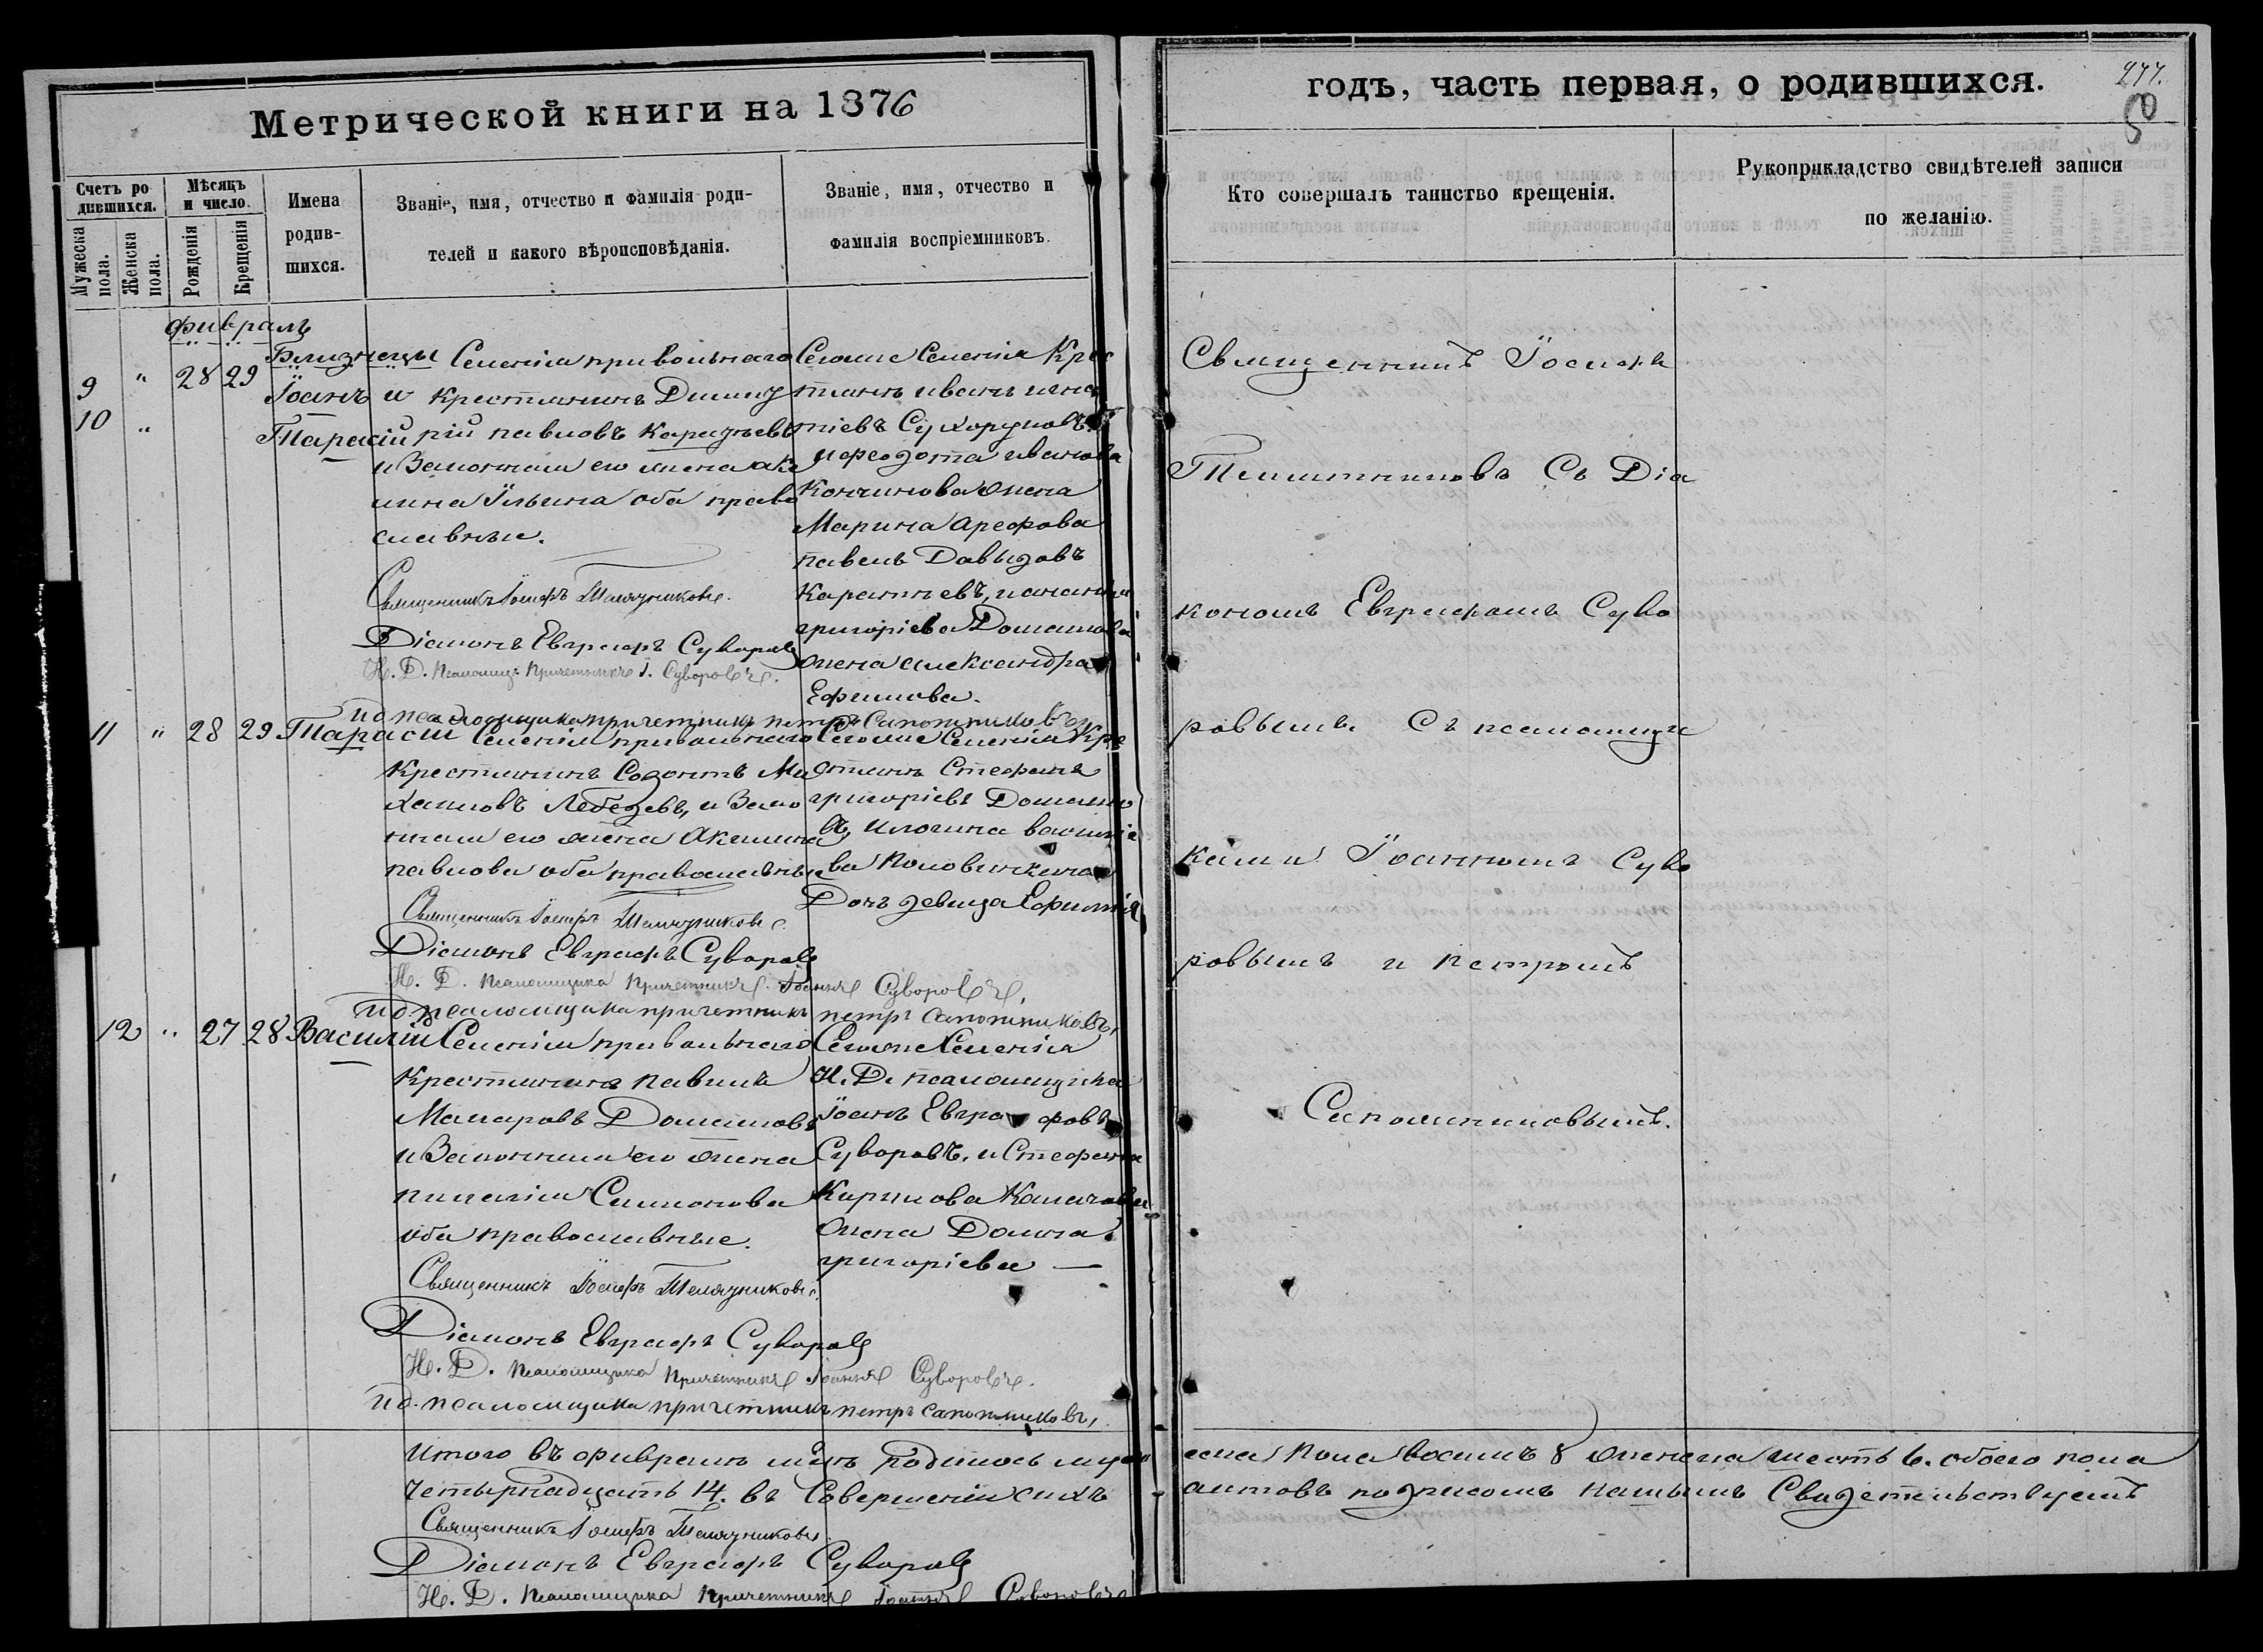 Метрической книги на 1876
Счетъ родившихся.
Мужеска пола.
Женска пола.
Мѣсяцъ и число.
Рожденія
Крещенія
Имена родившихся.
Званіе, имя, отчество и фамилія родителей и какого вѣроисповѣданія.
Званіе, имя, отчество и фамилія воспріемниковъ.
февраль
9 " 28 29 Близнецы
Іоанъ и
10 " Тарасій
Селенія привольнаго
крестьянинъ Димит
рій павловъ Каратѣевъ
и Законная его жена аки
лина Ильина оба право
славные.
Священникъ Іосифъ Темляузниковъ.
Діаконъ Евграфъ Суворовъ
И. Д. Псаломщ. Причетникъ І. Суворовъ.
ид псаломщика причетникъ петръ Сапожниковъ
Сегоже Селенія Крес
тьянъ иванъ игна
тіевъ Сухоруковъ
и федота иванова
Кончинова жена
Марина Арефова
павелъ Давыдовъ
Каратѣевъ, и анания
григоріева Домашова
жена александра
Ефимова.
11 " 28 29 Тарасій
Селенія привольнаго
Крестьянинъ Созонтъ Ми
хаиловъ Лебедевъ, и Зако
нная его жена Акилина
павлова оба православные
Священникъ Іосифъ
Діаконъ Евграфъ Суворовъ
И. Д. Псаломщика Причетникъ Іоаннъ Суворовъ.
ид псаломщика причетникъ петръ сапожниковъ,
Сегоже Селенія Кре
стьянъ Стефанъ
григоріевъ Домашо
въ, илогина василіе
ва Половинкина
Дочь девица Ефимія
12 " 27 28 Василій
Селенія привольнаго
Крестьянинъ павелъ
Макаровъ Домашовъ
и Законная его жена
пилагія Симонова
оба православные.
Священникъ Іосифъ
Діаконъ Евграфъ Суворовъ
И. Д. Псаломщика Причетникъ Іоаннъ Суворовъ.
ид. псаломщика причетникъ петръ сапожниковъ,
Сегоже Селенія
И. Д. псаломщика
Іоанъ Евграфовъ
Суворовъ. и Стефана
Карпова Калачова
жена Домна
григоріева —
Итого въ феврале м-цѣ родилось муж
четырнадцать 14. въ Совершеніи сихъ
Священникъ Іосифъ
Діаконъ Евграфъ Суворовъ
И. Д. Псаломщика Причетникъ Іоаннъ Суворовъ
годъ, часть первая, о родившихся.
277.
50
Кто совершалъ таинство крещенія.
Рукоприкладство свидѣтелей записи по желанію.
Священникъ Іосифъ
Съ Діа
кономъ Евграфомъ Суво
ровымъ Съ псаломщи
ками Іоанномъ Суво
ровымъ и петромъ
Сапожниковымъ.
еска пола восемь 8 женска шесть 6. обоего пола
актовъ подписомъ нашымъ Свидетельствуемъ